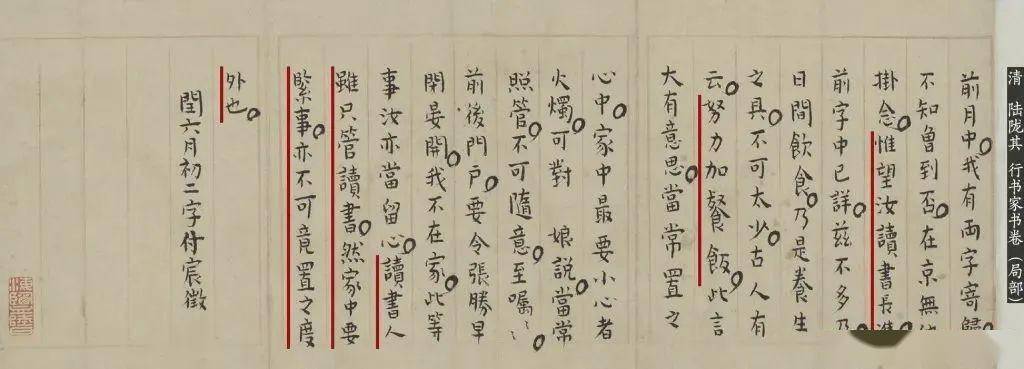 清 陆陇其 行书家书卷（局部）
前月中我有両字寄歸
不知曾到否在京無
掛念惟望汝讀書長進
前字中已詳茲不多
日間飲食乃是養生
之具不可太少古人有
云努力加餐飯此言
大有意思當常置之
心中家中最要小心者
火燭可對 娘説當常
照管不可隨意至囑〻
前後門戶要令張勝早
閉晏開我不在家此等
事汝亦當留心讀書人
雖只管讀書然家中要
緊事亦不可竟置之度
外也
閏六月初二字付宸徵